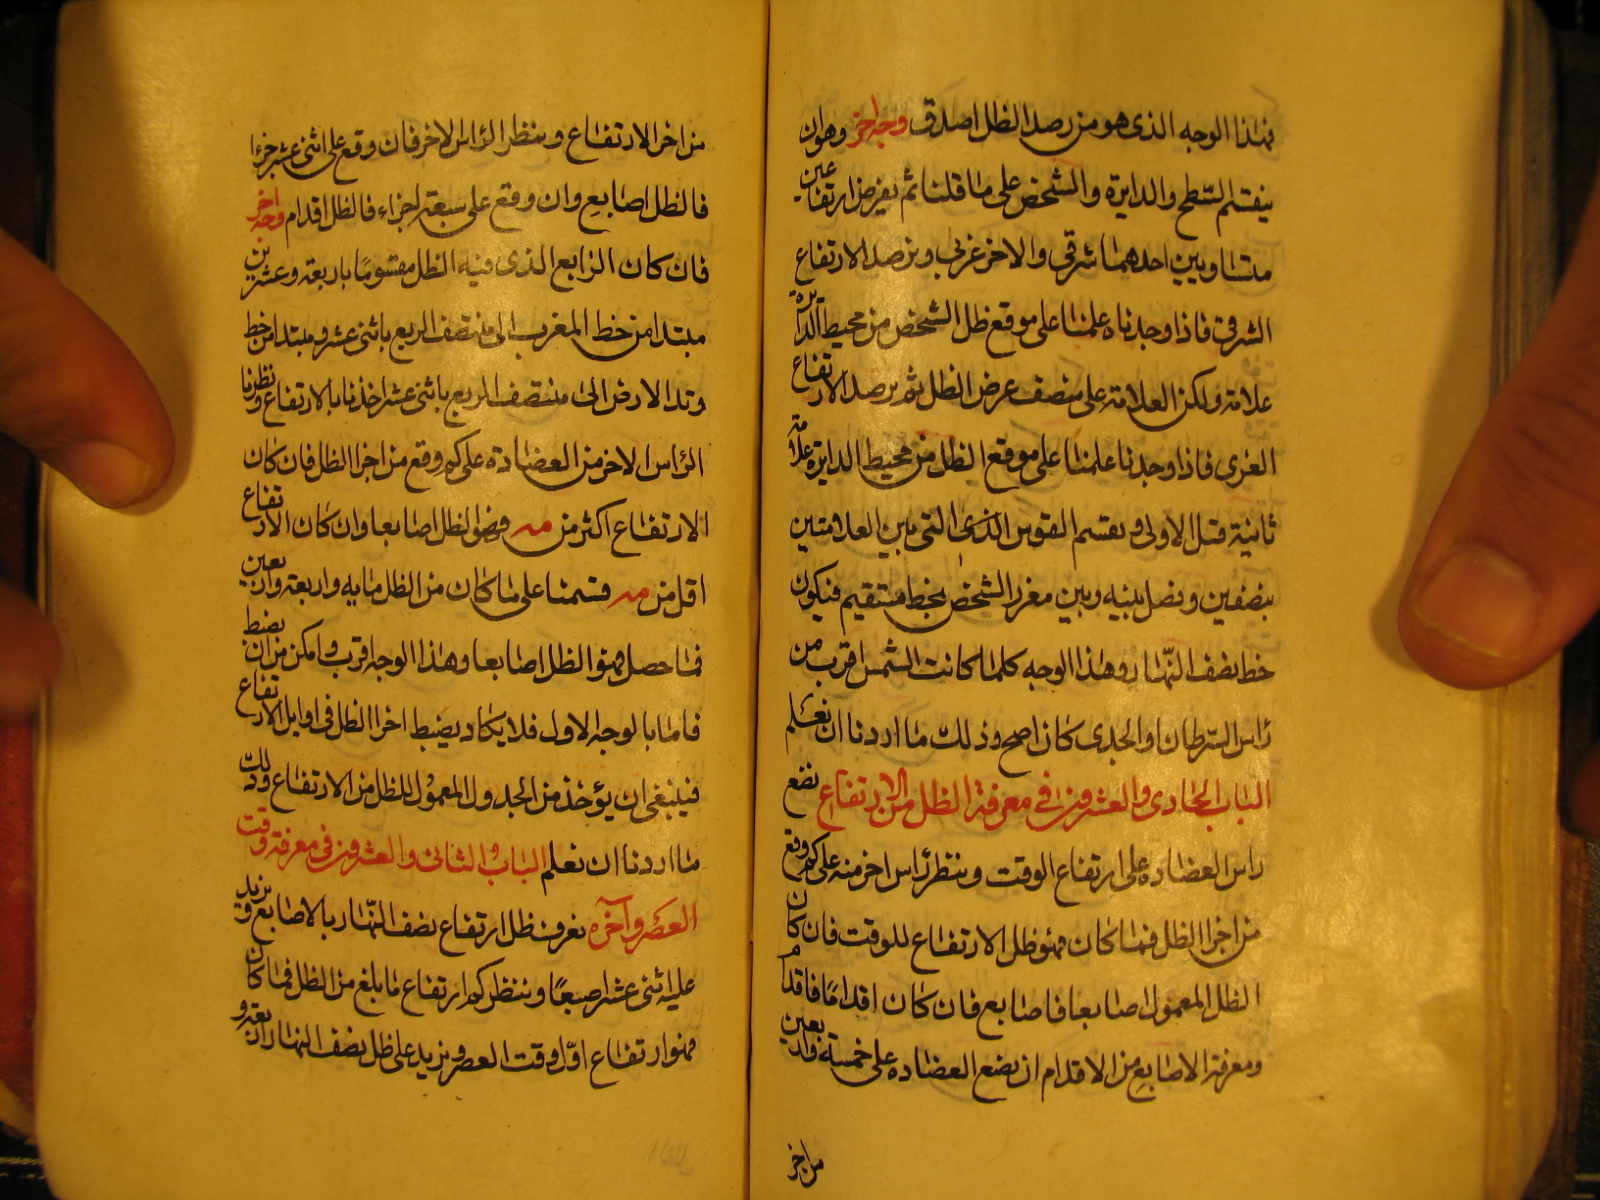 فهذا الوجه الذى هو من رصد الظل اصدق وجه اخر وهو ان
يتقدم السّطح والدايرة والشخص على ما قلنا ثم يفرض ارتفاعين
متساويين احدهما شرقى والاخر غربى ويرصد الارتفاع
الشرقى فاذا وجدناه علمنا على موقع ظل الشخص من محيط الدايرة
علامة ولكن العلامة على منصف عرض الظل ثم يرصد الارتفاع
الغربى فاذا وجدنا علمنا على موقع الظل من محيط الدايرة علامة
ثانية قبل الاولى ويقسم القوس الذى التى بين العلامتين
بنصفين ونصل بينه وبين مغرز الشخص بخط مستقيم فيكون
خط نصف النّهار وهذا الوجه كلما كانت الشمس اقرب من
رأس السّرطان والجدى كان اصح وذلك ما اردنا ان نعلم
الباب الحادى والعشرون فى معرفة الظل من الارتفاع نضع
راس العضاده على ارتفاع الوقت وننظر رأس اخر منه على كم وقع
من اجزا الظل فما كان فهو ظل الارتفاع للوقت فان كان
الظل المعمول اصابعا فاصابع فان كان اقدامًا فاقدام
ومعرفة الاصابع من الاقدام ان نضع العضاده على خمسة واربعين
من اجز
من اخر الارتفاع وينظر الرأس الاخر فان وقع على اثنى عشر جزءا
فالظل اصابع وان وقع على سبعة اجزاء فالظل اقدام وجه اخر
فان كان الرابع الذى فيه الظل مقسومًا باربعة وعشرين
مبتدا من خط المغرب الى منتصف الربع باثنى عشر ومبتدا من خط
وتد الارض الى منتصف الربع باثنى عشر اخذنا بالارتفاع ونظرنا
الرأس الاخر من العضادة على كم وقع من اجزا الظل فان كان
الارتفاع اكثر من مه فهو الظل اصابعا وان كان الارتفاع
اقل من مه قسمنا على ما كان من الظل مايه واربعة واربعين
فما حصل فهو الظل اصابعا وهذا الوجه اقرب وامكن من ان يضبط
فاما بالوجه الاول فلا يكاد يضبط اخرا الظل فى اوايل الارتفاع
فينبغى ان يؤخذ من الجدول المعمول للظل من الارتفاع وذلك
ما اردنا ان نعلم الباب الثانى والعشرون فى معرفة وقت
العصر وآخره نعرف ظل ارتفاع نصف النّهار بالاصابع ونزيد
عليه اثنى عشر اصبعًا وننظر كم ارتفاع ما بلغ من الظل فما كان
فهو ارتفاع اوّل وقت العصر ونزيد على ظل نصف النهار اربعة و